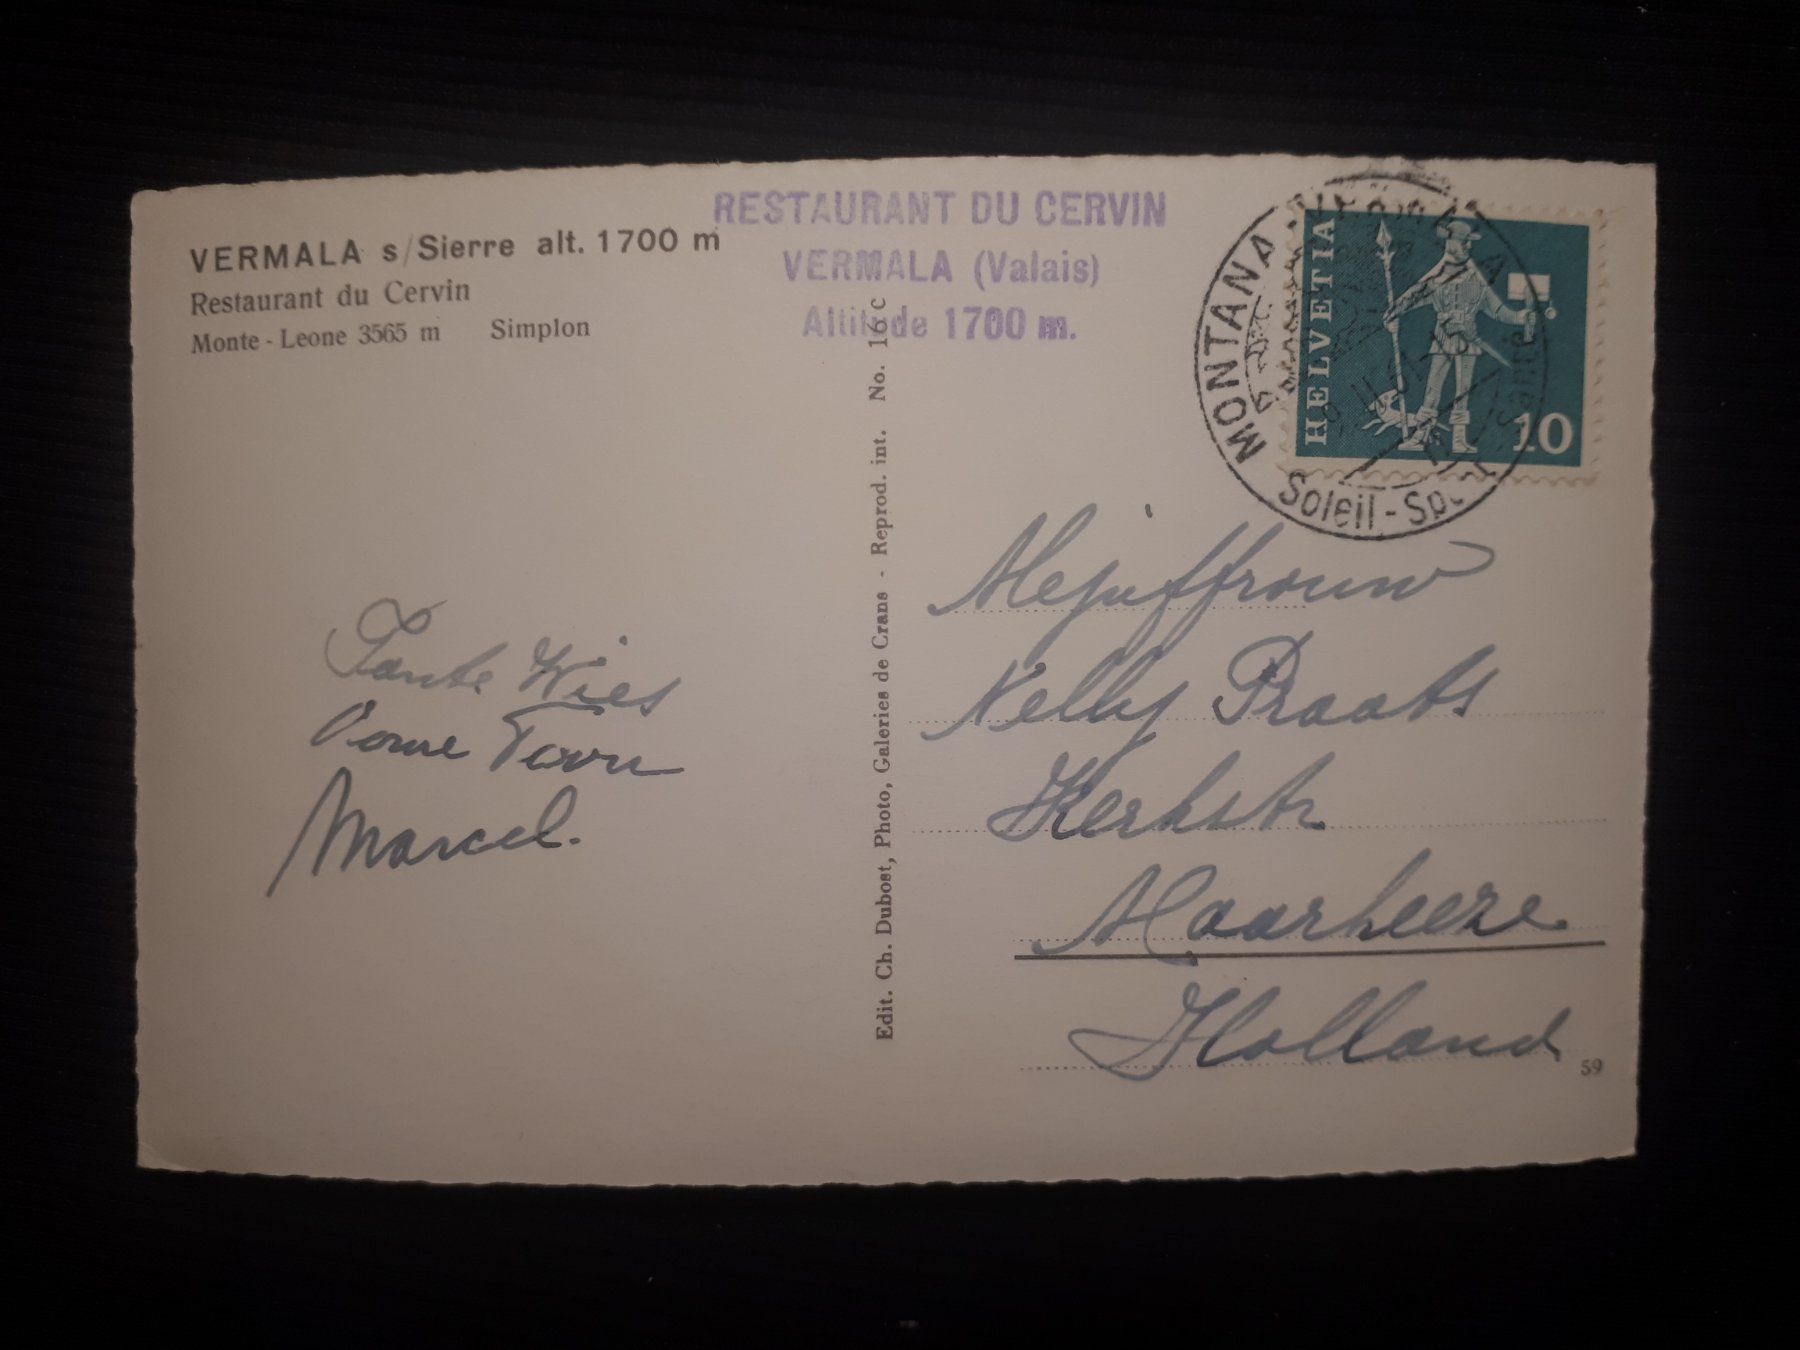 VERMALA s/Sierre alt. 1700 m
Restaurant du Cervin
Monte-Leone 3565 m Simplon
RESTAURANT DU CERVIN
VERMALA (Valais)
Altitude 1700 m.
HELVETIA
10
MONTANA-VERMALA
Soleil-Sport-Santé
Tante Wies
Oome Teun
Marcel.
Edit. Ch. Dubost, Photo, Galeries de Crans - Reprod. int. No. 16 c
Mejuffrouw
Nelly Praats
Kerkstr
Maarheeze
Holland
59